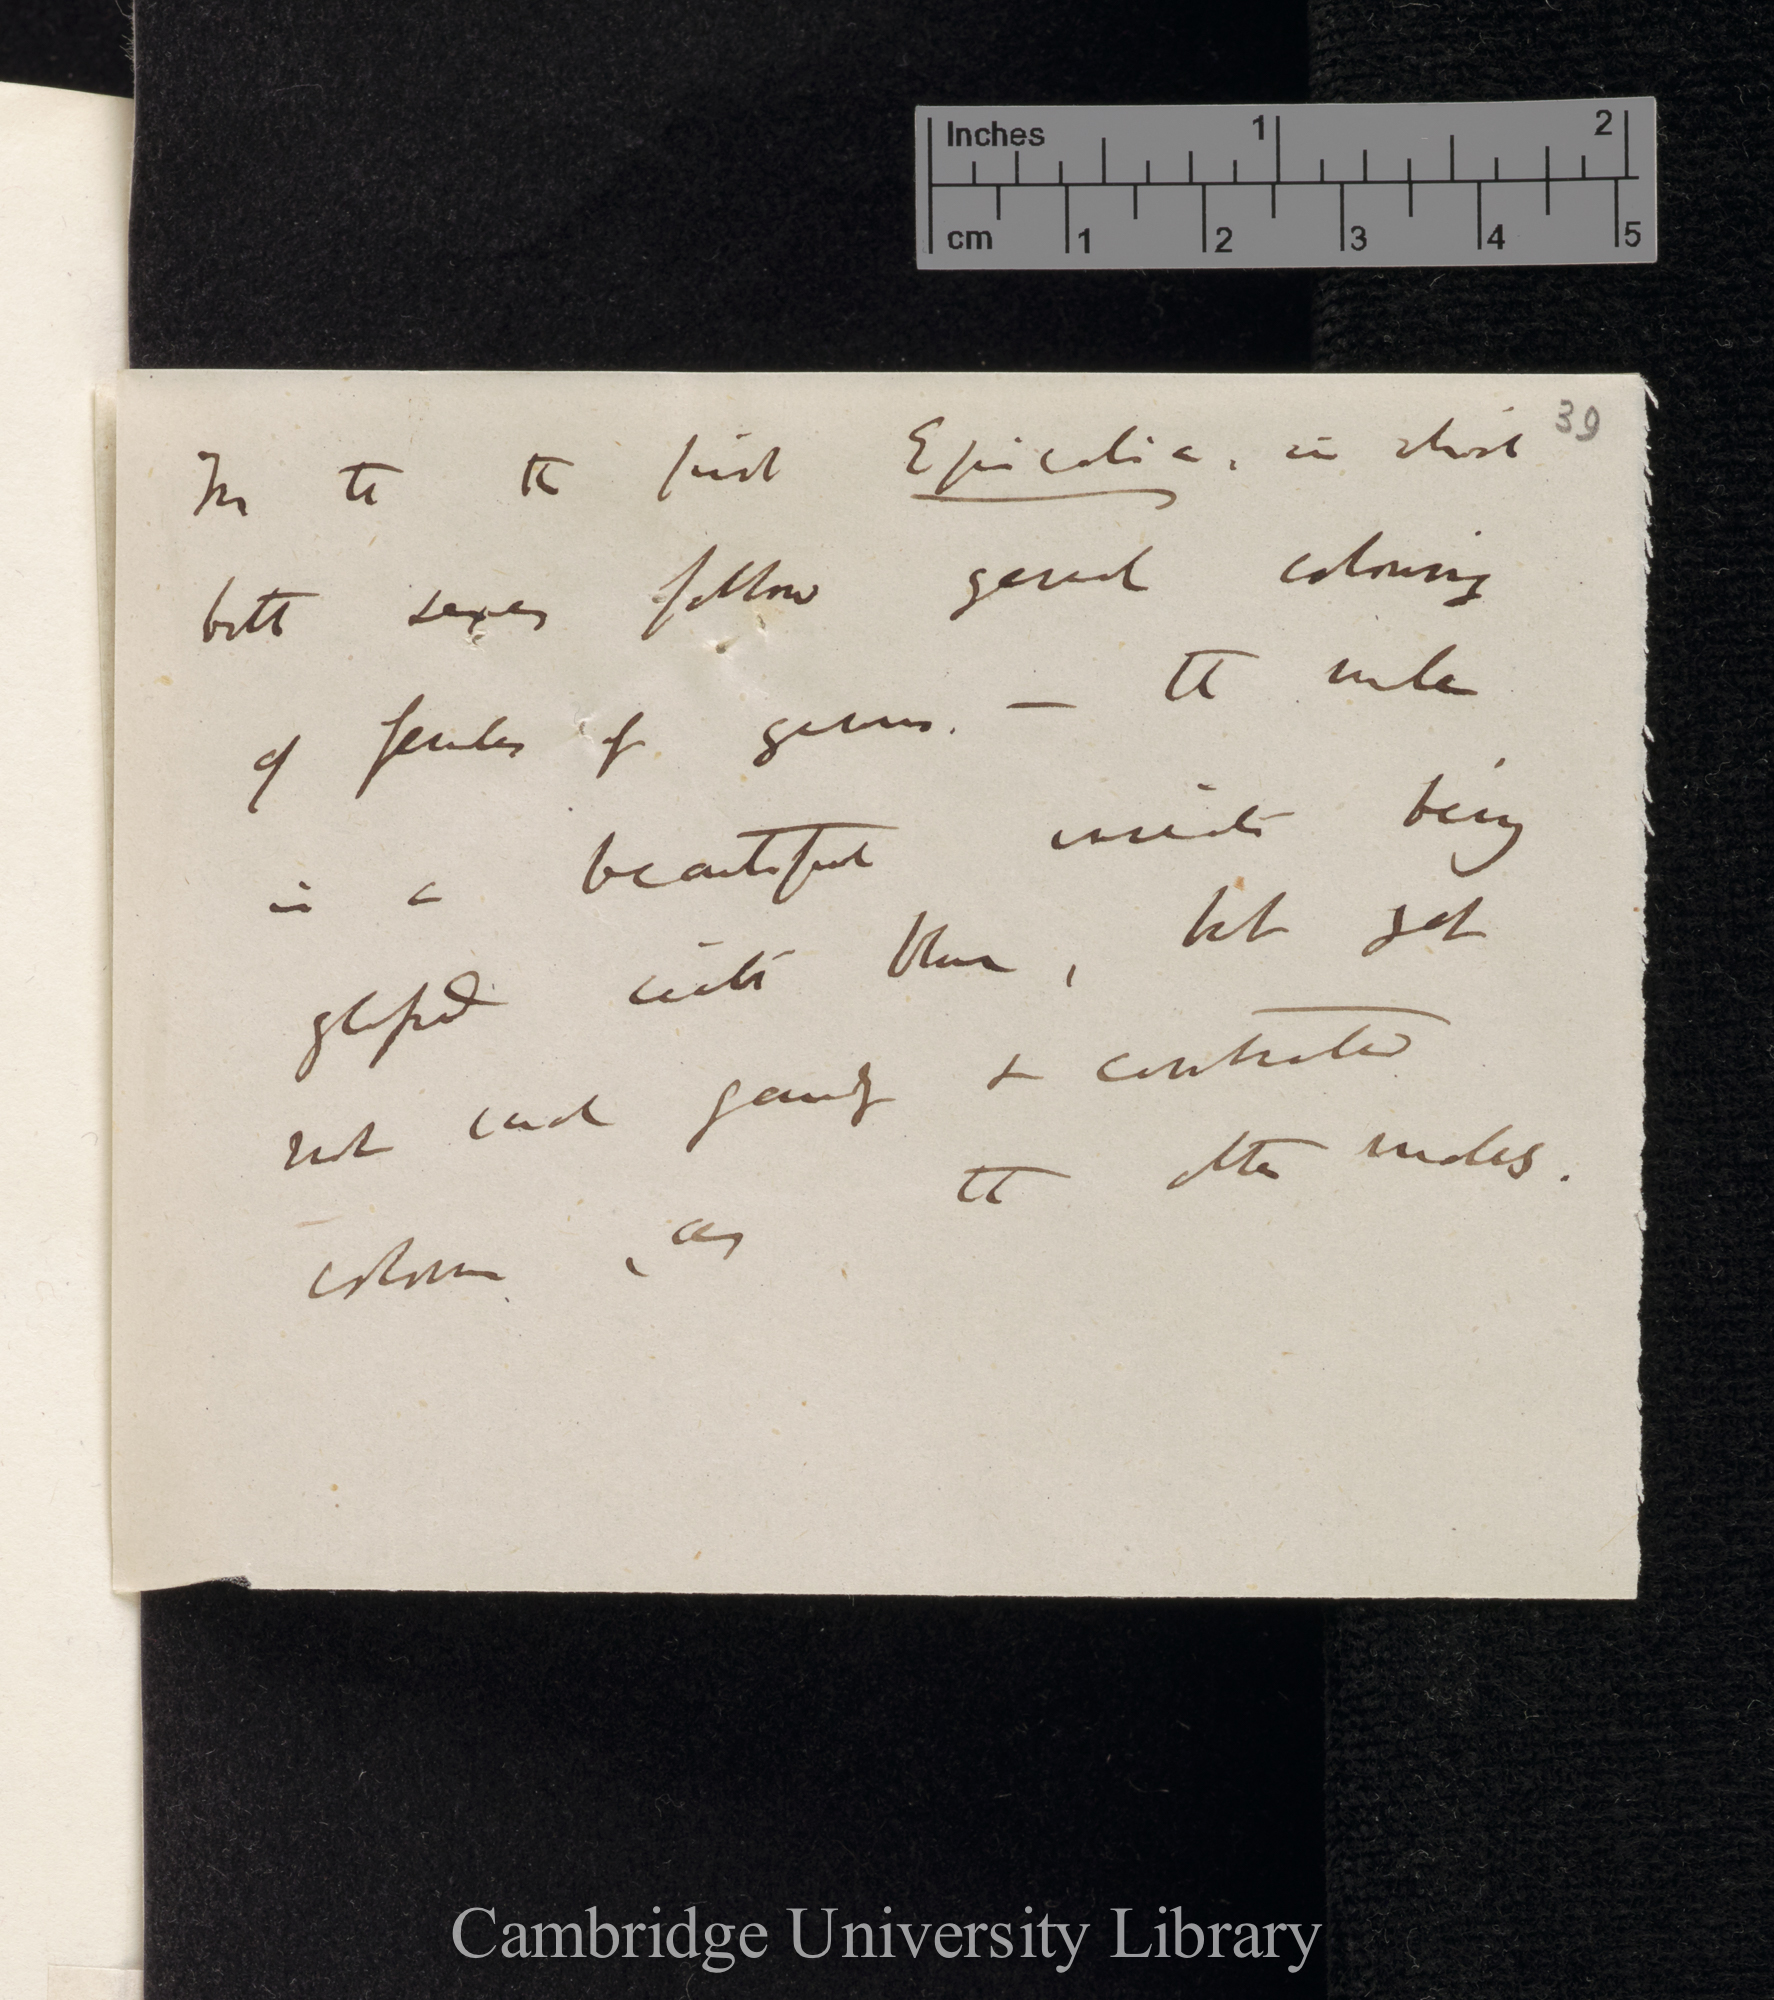 Inches 1 2
cm 1 2 3 4 5
39
the first Epicalia, in which
both sexes follow general colouring
of females of genus. — The male
is a beautiful insect being
glossed with blue, but yet
not such gaudy & contrasted
colours, as the other males.
Cambridge University Library